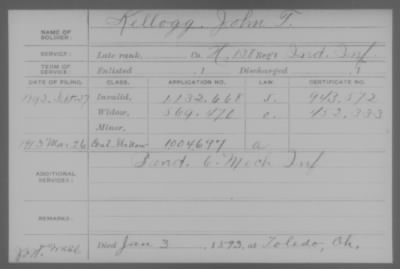 NAME OF SOLDIER: Kellogg, John T.
SERVICE: Late rank, Co. H, 128 Reg't Ind. Inf
TERM OF SERVICE: Enlisted , 1 Discharged , 1
DATE OF FILING. CLASS. APPLICATION NO. LAW. CERTIFICATE NO.
1892 Sept 27 Invalid, 1132.668 943.572
Widow, 569.470 452.333
Minor,
1913 Mar. 26 Cont. Widow 1004647 a
ADDITIONAL SERVICES: Band 6 Mich Inf
REMARKS:
Died Jan 3, 1893, at Toledo, Oh.